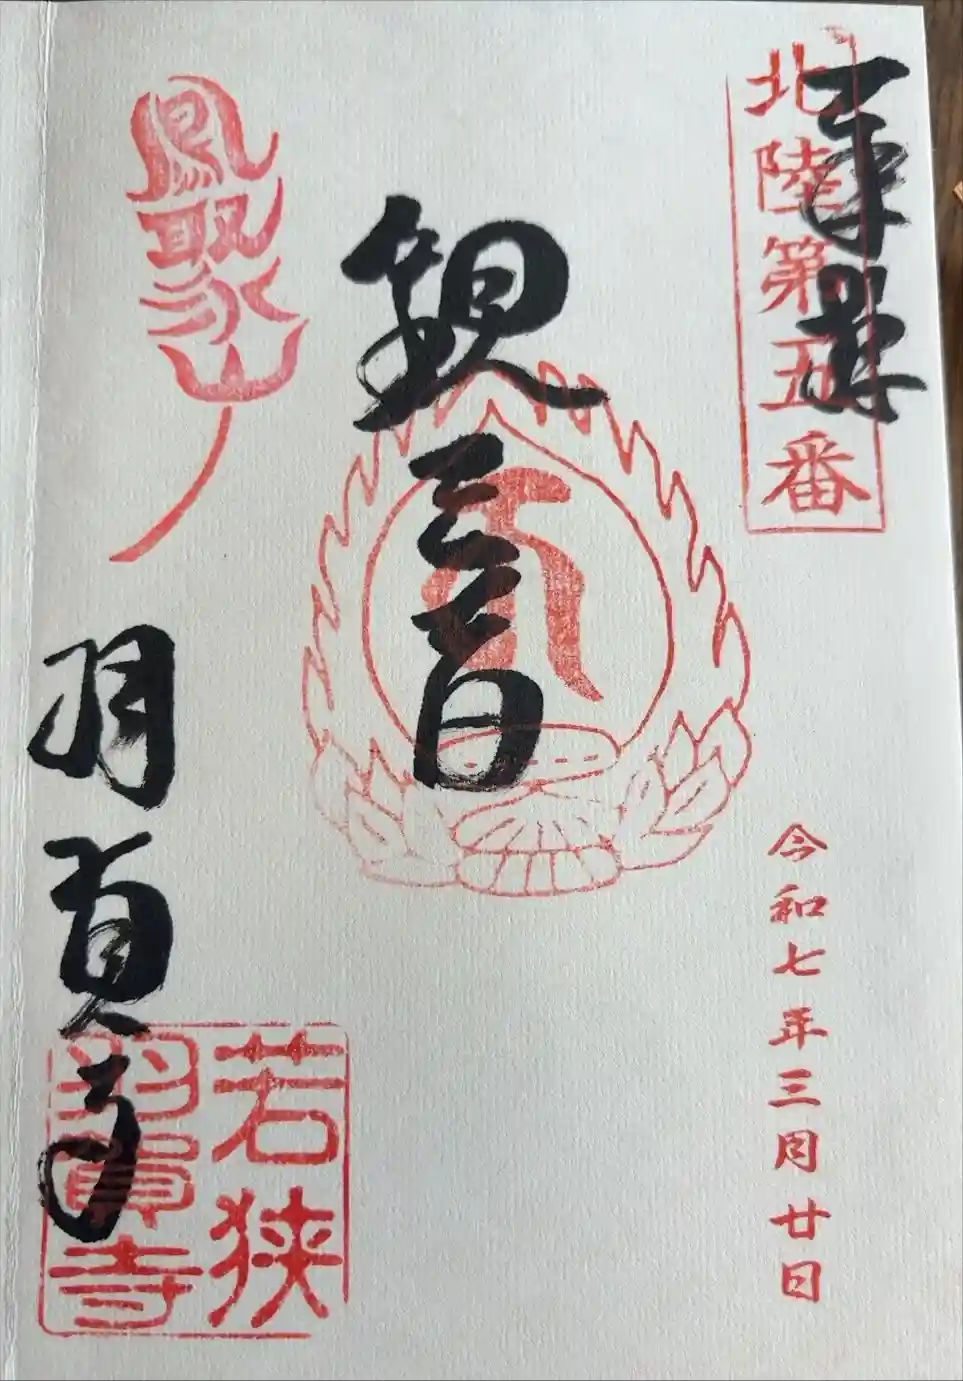 奉拝
北陸第五番
令和七年三月廿日
観世音
鳳聚山
羽賀寺
若狭
羽賀寺